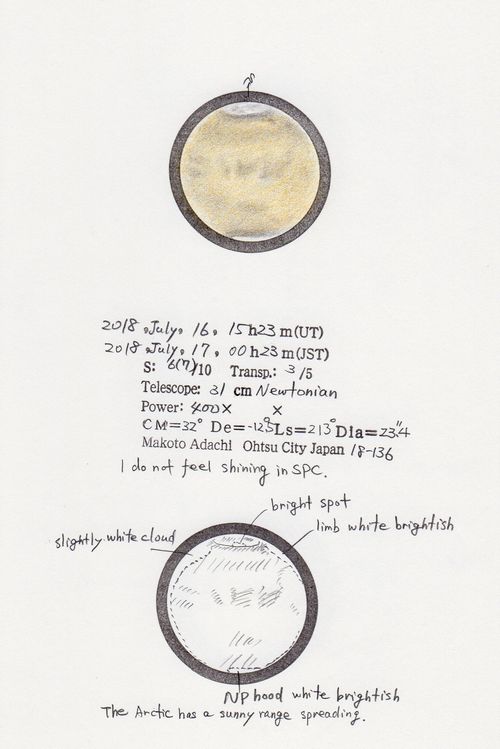 2018, July, 16, 15h23m(UT)
2018, July, 17, 00h23m(JST)
S: 6(7)/10 Transp.: 3/5
Telescope: 31 cm Newtonian
Power: 400× ×
CM=32° De=-12.9° Ls=213° Dia=23".4
Makoto Adachi Ohtsu City Japan 18-136
I do not feel shining in SPC.
bright spot
limb white brightish
slightly white cloud
NPhood white brightish
The Arctic has a sunny range spreading.